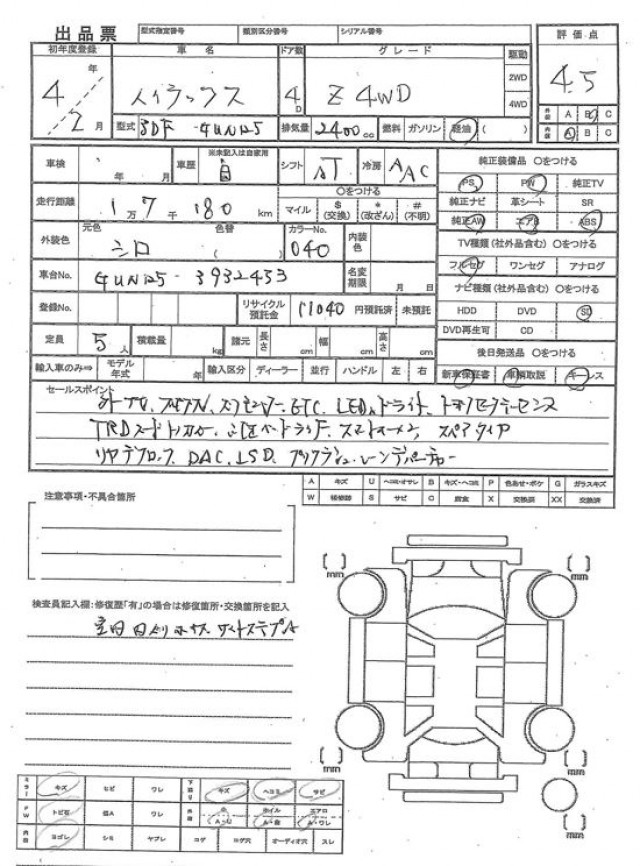 出品票 型式指定番号 類別区分番号 シリアル番号
初年度登録 車名 ドア数 グレード 駆動 評価点
4年 2月 ハイラックス 4D Z 4WD 2WD 4WD 4.5
外装 A B C
型式 3DF-GUN125 排気量 2400cc 燃料 ガソリン 軽油 ( ) 内装 A B C
車検 年 月 車歴 ※未記入は自家用 自 シフト AT 冷房 AAC 純正装備品 ○をつける
PS PW 純正TV
走行距離 1万7千180km ○をつける マイル $(交換) *(改ざん) #(不明) 純正ナビ 革シート SR
純正AW エアB ABS
外装色 元色 シロ 色替 ( ) カラーNo. 040 内装色 TV種類(社外品含む) ○をつける
フルセグ ワンセグ アナログ
車台No. GUN125-3932453 名変期限 月 日 ナビ種類(社外品含む) ○をつける
登録No. リサイクル預託金 11040 円預託済 未預託 HDD DVD SD
DVD再生可 CD
定員 5人 積載量 kg 諸元 長さ cm 幅 cm 高さ cm 後日発送品 ○をつける
輸入車のみ⇒ モデル年式 年 輸入区分 ディーラー 並行 ハンドル 左 右 新車保証書 車輌取説 キーレス
セールスポイント
ETC、LED
TRD スペアタイヤ
リヤデフロック、DAC、LSD、
A キズ U ヘコミ・オサレ B キズ・ヘコミ P 色あせ・ボケ G ガラスキズ
W 補修跡 S サビ C 腐食 X 交換要 XX 交換済
注意事項・不具合箇所
検査員記入欄:修復歴「有」の場合は修復箇所・交換箇所を記入
( ) mm ( ) mm
( ) mm ( ) mm
( ) mm
ミラー キズ ヒビ ワレ 下廻り キズ ヘコミ サビ
FW トビ石 傷A ワレ 外装 ホイル エアロ
A・U A・腐 A・ワレ
内装 ヨゴレ シミ ヤブレ コゲ コゲ穴 オーディオ穴 スレ